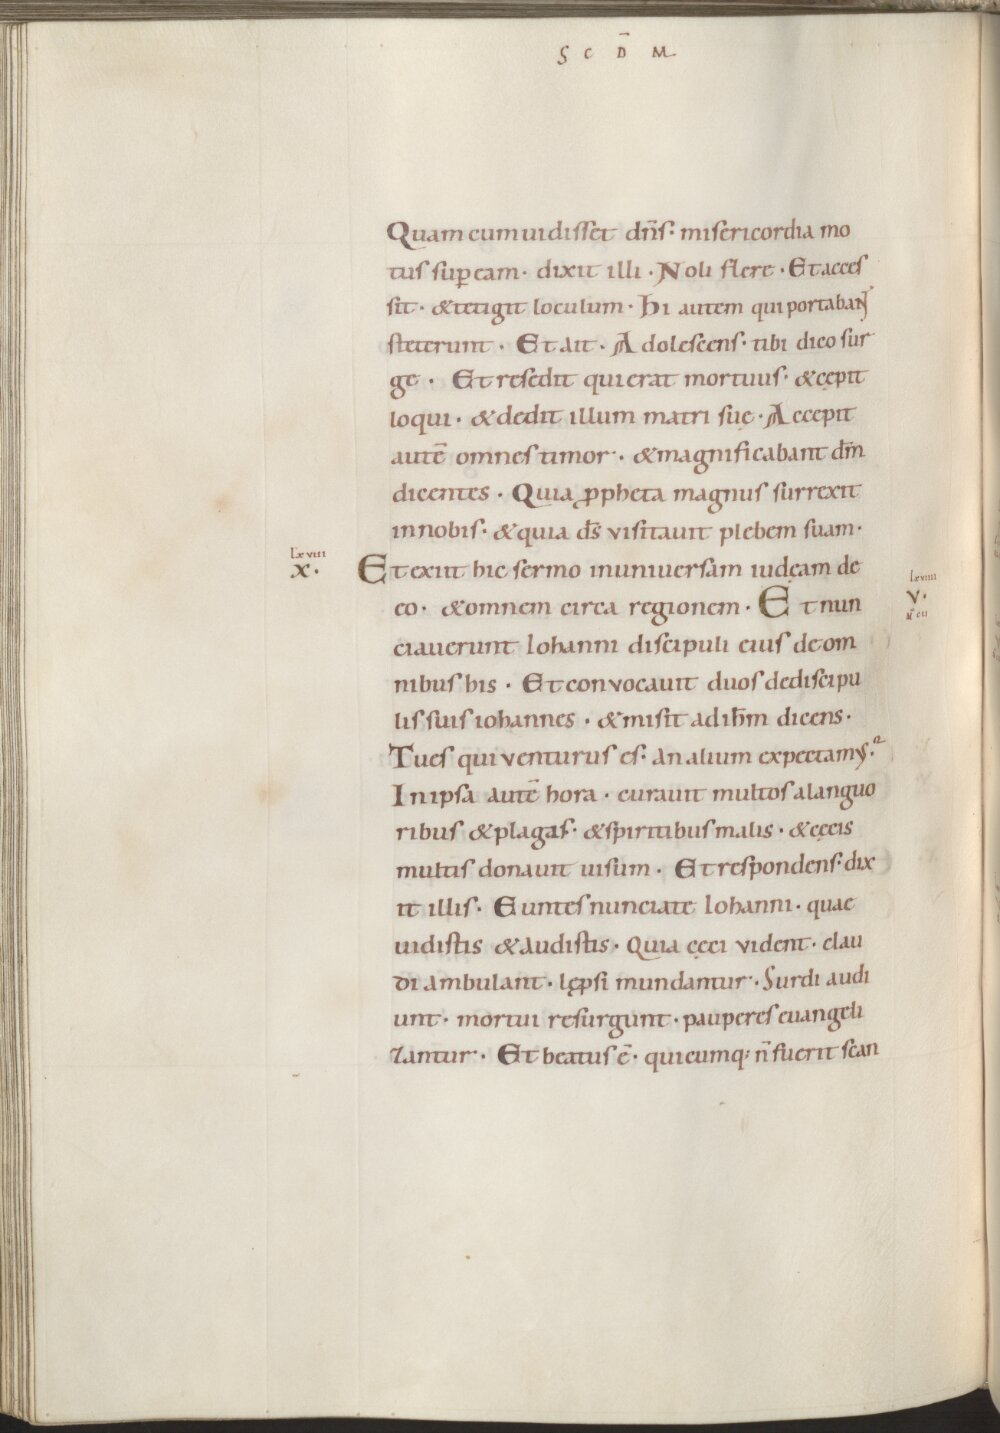 S C D̄ M
Quam cum uidisset dn̄s· misericordia mo
tus sup̱ eam· dixit illi · Noli flere · Et acces
sit · & tetigit loculum · Hi autem qui portabant
steterunt · Et ait · Adolescens · tibi dico sur
ge · Et resedit qui erat mortuus · & cepit
loqui · & dedit illum matri suę · Accepit
autē omnes timor · & magnificabant dm̄
dicentes · Quia ꝓpheta magnus surrexit
in nobis · & quia ds̄ visitauit plebem suam ·
Lxviii
x · Et exiit hic sermo in uniuersam iudęam de
Lxviiii
eo · & omnem circa regionem · Et nun v ·
ciauerunt Iohanni discipuli eius de om
nibus his · Et convocauit duos de discipu
lis suis iohannes · & misit ad ihm̄ dicens ·
Tu es qui venturus es · an alium expectamus ·
In ipsa autē hora · curauit multos a languo
ribus & plagas · & spiritibus malis · & cęcis
multis donauit uisum · Et respondens · dix
it illis · Euntes nunciate Iohanni · quae
uidistis & audistis · Quia cęci vident · clau
di ambulant · lępsi mundantur · Surdi audi
unt · mortui resurgunt · pauperes euangeli
zantur · Et beatus ē · quicumq; n̄ fuerit scan